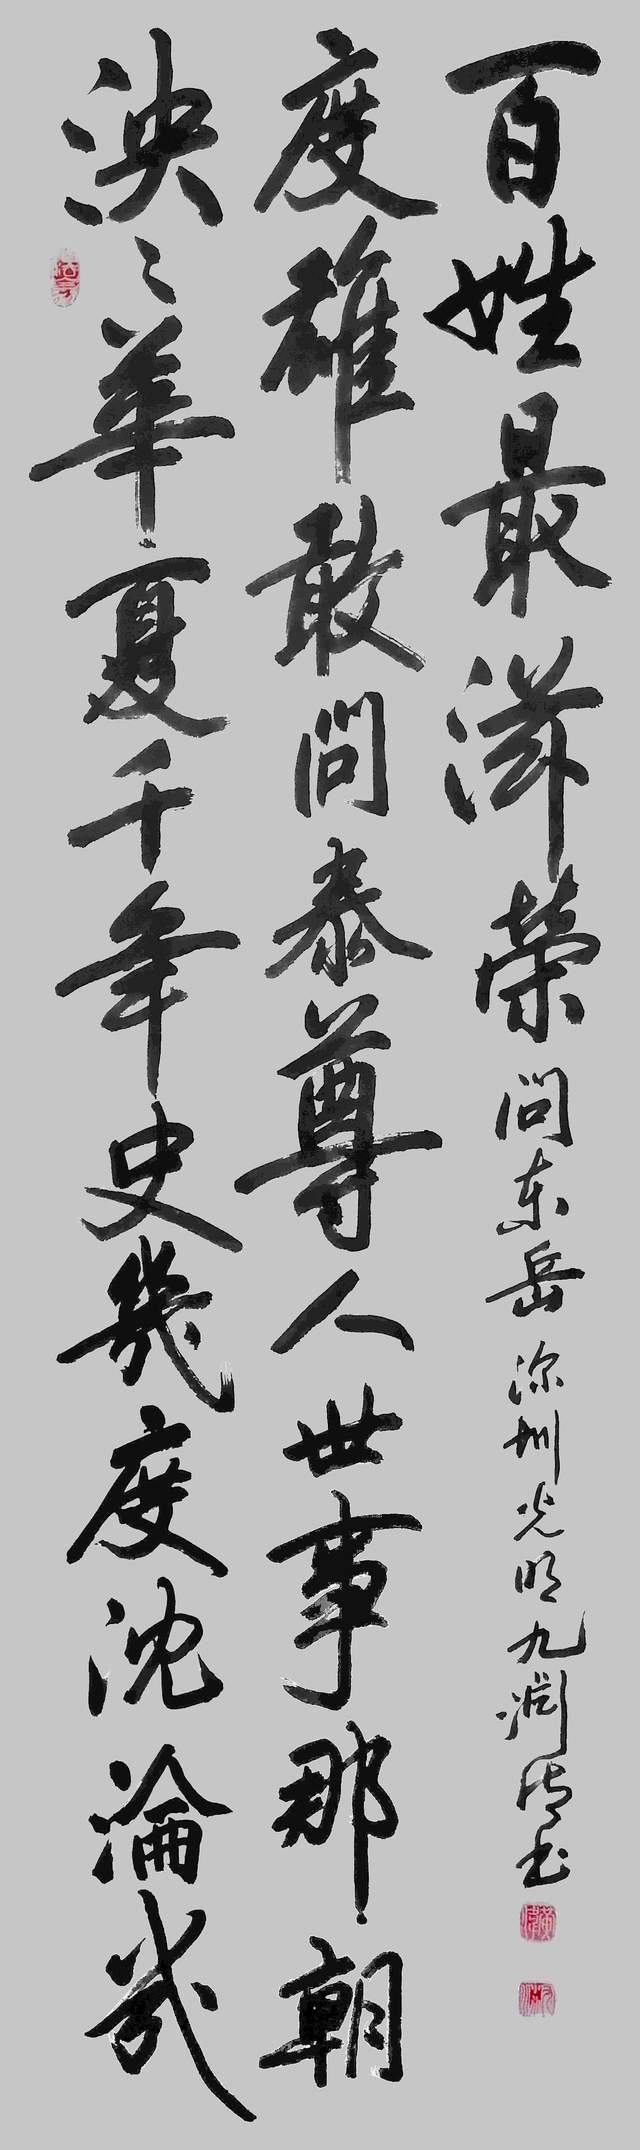 泱〻華夏千年史幾度沈淪幾
度雄敢問泰尊人世事那朝
百姓最滋榮 問东岳 深圳光明九淵书